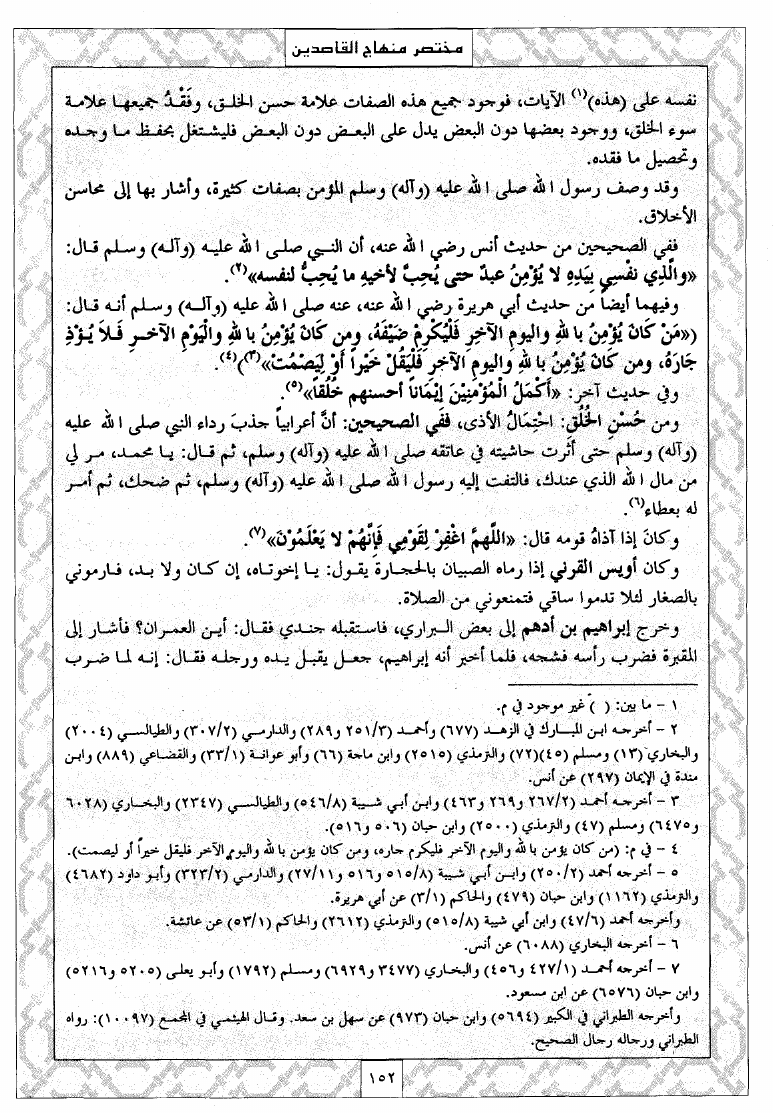 مختصر منهاج القاصدين
نفسه على (هذه)(١) الآيات، فوجود جميع هذه الصفات علامة حسن الخلق، وفَقْدُ جميعها علامة
سوء الخلق، ووجود بعضها دون البعض يدل على البعض دون البعض فليشتغل بحفظ ما وجده
وتحصيل ما فقده.
وقد وصف رسول الله صلى الله عليه (وآله) وسلم المؤمن بصفات كثيرة، وأشار بها إلى محاسن
الأخلاق.
ففي الصحيحين من حديث أنس رضي الله عنه، أن النبي صلى الله عليه (وآله) وسلم قال:
«والَّذي نفْسي بيَدِهِ لا يُؤْمِنُ عبدٌ حتى يُحِبَّ لأخيهِ ما يُحِبُّ لنفسه»(٢).
وفيهما أيضاً من حديث أبي هريرة رضي الله عنه، عنه صلى الله عليه (وآله) وسلم أنه قال:
(«مَنْ كانَ يُؤْمِنُ بالله واليومِ الآخرِ فَلْيُكْرِمْ ضَيْفَهُ، ومن كانَ يُؤْمِنُ بالله واليَوْمِ الآخرِ فَلاَ يُؤْذِ
جَارَهُ، ومن كانَ يُؤْمِنُ بالله واليومِ الآخرِ فَلْيَقُلْ خَيْراً أَوْ لِيَصمُتْ»(٣))(٤).
وفي حديث آخر: «أَكْمَلُ الْمُؤْمِنِيْنَ إيْمَاناً أحسنهم خُلُقاً»(٥).
ومن حُسْنِ الخُلُقِ: احتِمَالُ الأذى، ففي الصحيحين: أنَّ أعرابياً جذبَ رداء النبي صلى الله عليه
(وآله) وسلم حتى أثَّرت حاشيته في عاتقه صلى الله عليه (وآله) وسلم، ثم قال: يا محمد، مر لي
من مال الله الذي عندك، فالتفت إليه رسول الله صلى الله عليه (وآله) وسلم، ثم ضحك، ثم أمر
له بعطاء(٦).
وكانَ إذا آذاهُ قومه قال: «اللَّهمَّ اغْفِرْ لِقَوْمِي فَإنَّهُمْ لا يَعْلَمُوْنَ»(٧).
وكان أويس القرني إذا رماه الصبيان بالحجارة يقول: يا إخوتاه، إن كان ولا بد، فارموني
بالصغار لئلا تدموا ساقي فتمنعوني من الصلاة.
وخرج إبراهيم بن أدهم إلى بعض البراري، فاستقبله جندي فقال: أين العمران؟ فأشار إلى
المقبرة فضرب رأسه فشجه، فلما أخبر أنه إبراهيم، جعل يقبل يده ورجله فقال: إنه لما ضرب
١ - ما بين: ( ) غير موجود في م.
٢ - أخرجه ابن المبارك في الزهد (٦٧٧) وأحمد (٢٥١/٣ و٢٨٩) والدارمي (٣٠٧/٢) والطيالسي (٢٠٠٤)
والبخاري (١٣) ومسلم (٤٥)(٧٢) والترمذي (٢٥١٥) وابن ماجة (٦٦) وأبو عوانة (٣٣/١) والقضاعي (٨٨٩) وابن
مندة في الإيمان (٢٩٧) عن أنس.
٣ - أخرجه أحمد (٢٦٧/٢ و٢٦٩ و٤٦٣) وابن أبي شيبة (٥٤٦/٨) والطيالسي (٢٣٤٧) والبخاري (٦٠٢٨
و٦٤٧٥) ومسلم (٤٧) والترمذي (٢٥٠٠) وابن حبان (٥٠٦ و٥١٦).
٤ - في م: (من كان يؤمن بالله واليوم الآخر فليكرم جاره، ومن كان يؤمن بالله واليوم الآخر فليقل خيراً أو ليصمت).
٥ - أخرجه أحمد (٢٥٠/٢) وابن أبي شيبة (٥١٥/٨ و٥١٦ و٢٧/١١) والدارمي (٣٢٣/٢) وأبو داود (٤٦٨٢)
والترمذي (١١٦٢) وابن حبان (٤٧٩) والحاكم (٣/١) عن أبي هريرة.
وأخرجه أحمد (٤٧/٦) وابن أبي شيبة (٥١٥/٨) والترمذي (٢٦١٢) والحاكم (٥٣/١) عن عائشة.
٦ - أخرجه البخاري (٦٠٨٨) عن أنس.
٧ - أخرجه أحمد (٤٢٧/١ و٤٥٦) والبخاري (٣٤٧٧ و٦٩٢٩) ومسلم (١٧٩٢) وأبو يعلى (٥٢٠٥ و٥٢١٦)
وابن حبان (٦٥٧٦) عن ابن مسعود.
وأخرجه الطبراني في الكبير (٥٦٩٤) وابن حبان (٩٧٣) عن سهل بن سعد. وقال الهيثمي في المجمع (١٠٠٩٧): رواه
الطبراني ورجاله رجال الصحيح.
١٥٢